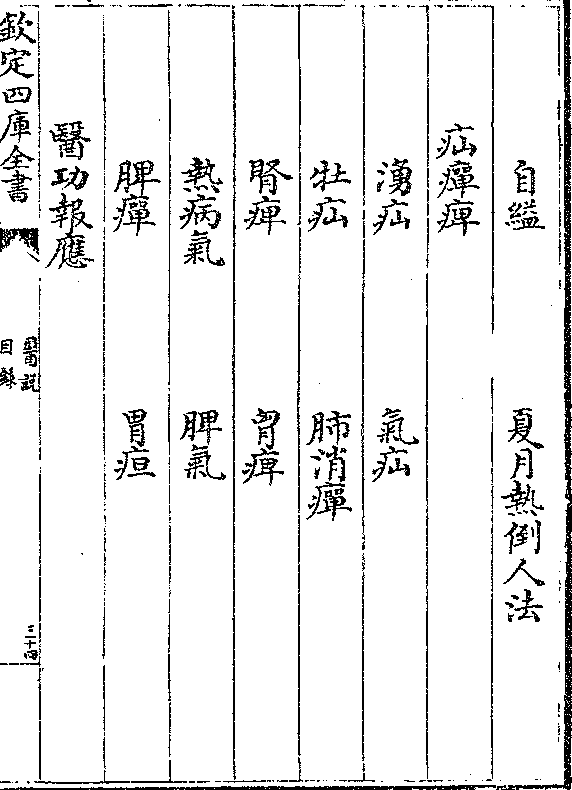 自縊　夏月熱倒人法
疝癉痺
湧疝　氣疝
牡疝　肺消癉
腎痺　胃痺
熱病氣　脾氣
脾癉　胃疸
醫功報應
欽定四庫全書
醫説
目錄
三十四